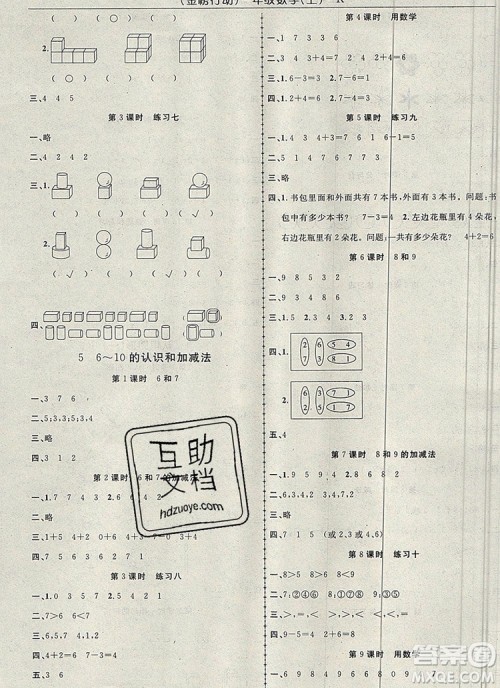 (金榜行动) 年级数学(上) R
1. ( ) ( ) ( ) (√)
2.
( ) (√) ( )
三、4 4 5
第3课时 练习七
一、略
二、2 4 2
三、1.
( ) (√) ( ) ( )
2.
(√) ( ) ( ) (√)
四、
5 6～10的认识和加减法
第1课时 6和7
一、3 7 6
二、5;3;5;3;5;7
三、略
四、3 1 2
第2课时 6和7的加减法
一、1 2 3 4 5 6
二、略
三、2+4=6 4+2=6 6-4=2
6-2=4
四、7 6 6 7 5
第3课时 练习八
一、1.0 3 5 2.3 4 1
二、7>6 6<7
三、略
四、2+4=6 7-3=4
第4课时 用数学
一、1 7 3 3 5 6
二、4 2 6
三、1.6-3=3 2.7-1=6
四、1.2+4=6 2.7-6=1
第5课时 练习九
一、2 4 3 1+3+2=6 7-6=1
二、5 1 6 7 4 7 7 7 7
三、略
四、1.书包里面和外面共有7本书。问题:书
包中有多少本书? 7-3=4 2.左边花瓶里有4朵花,右边花瓶里有2朵花。问题:一共有多少朵花? 4+2=6
第6课时 8和9
一、9 8 5 3 2
二、> < < =
三、1.5 2.3 4 2.9 3
四、1. 2 6 5 4 6 7 8 1
2. 2 4 5 2 6 7 6 1
五、4
第7课时 8和9的加减法
一、1.5 9 4 2.8 6 8 2
二、略
三、(1,5) (或2,3或4,6)
四、2+6=8
第8课时 练习十
一、8>5 6>1 8<9
二、7;①④② 7;③②④
三、> < > < > <
四、8-5=3
第9课时 用数学
一、8 4 6 9 6 8 4 0 9 7